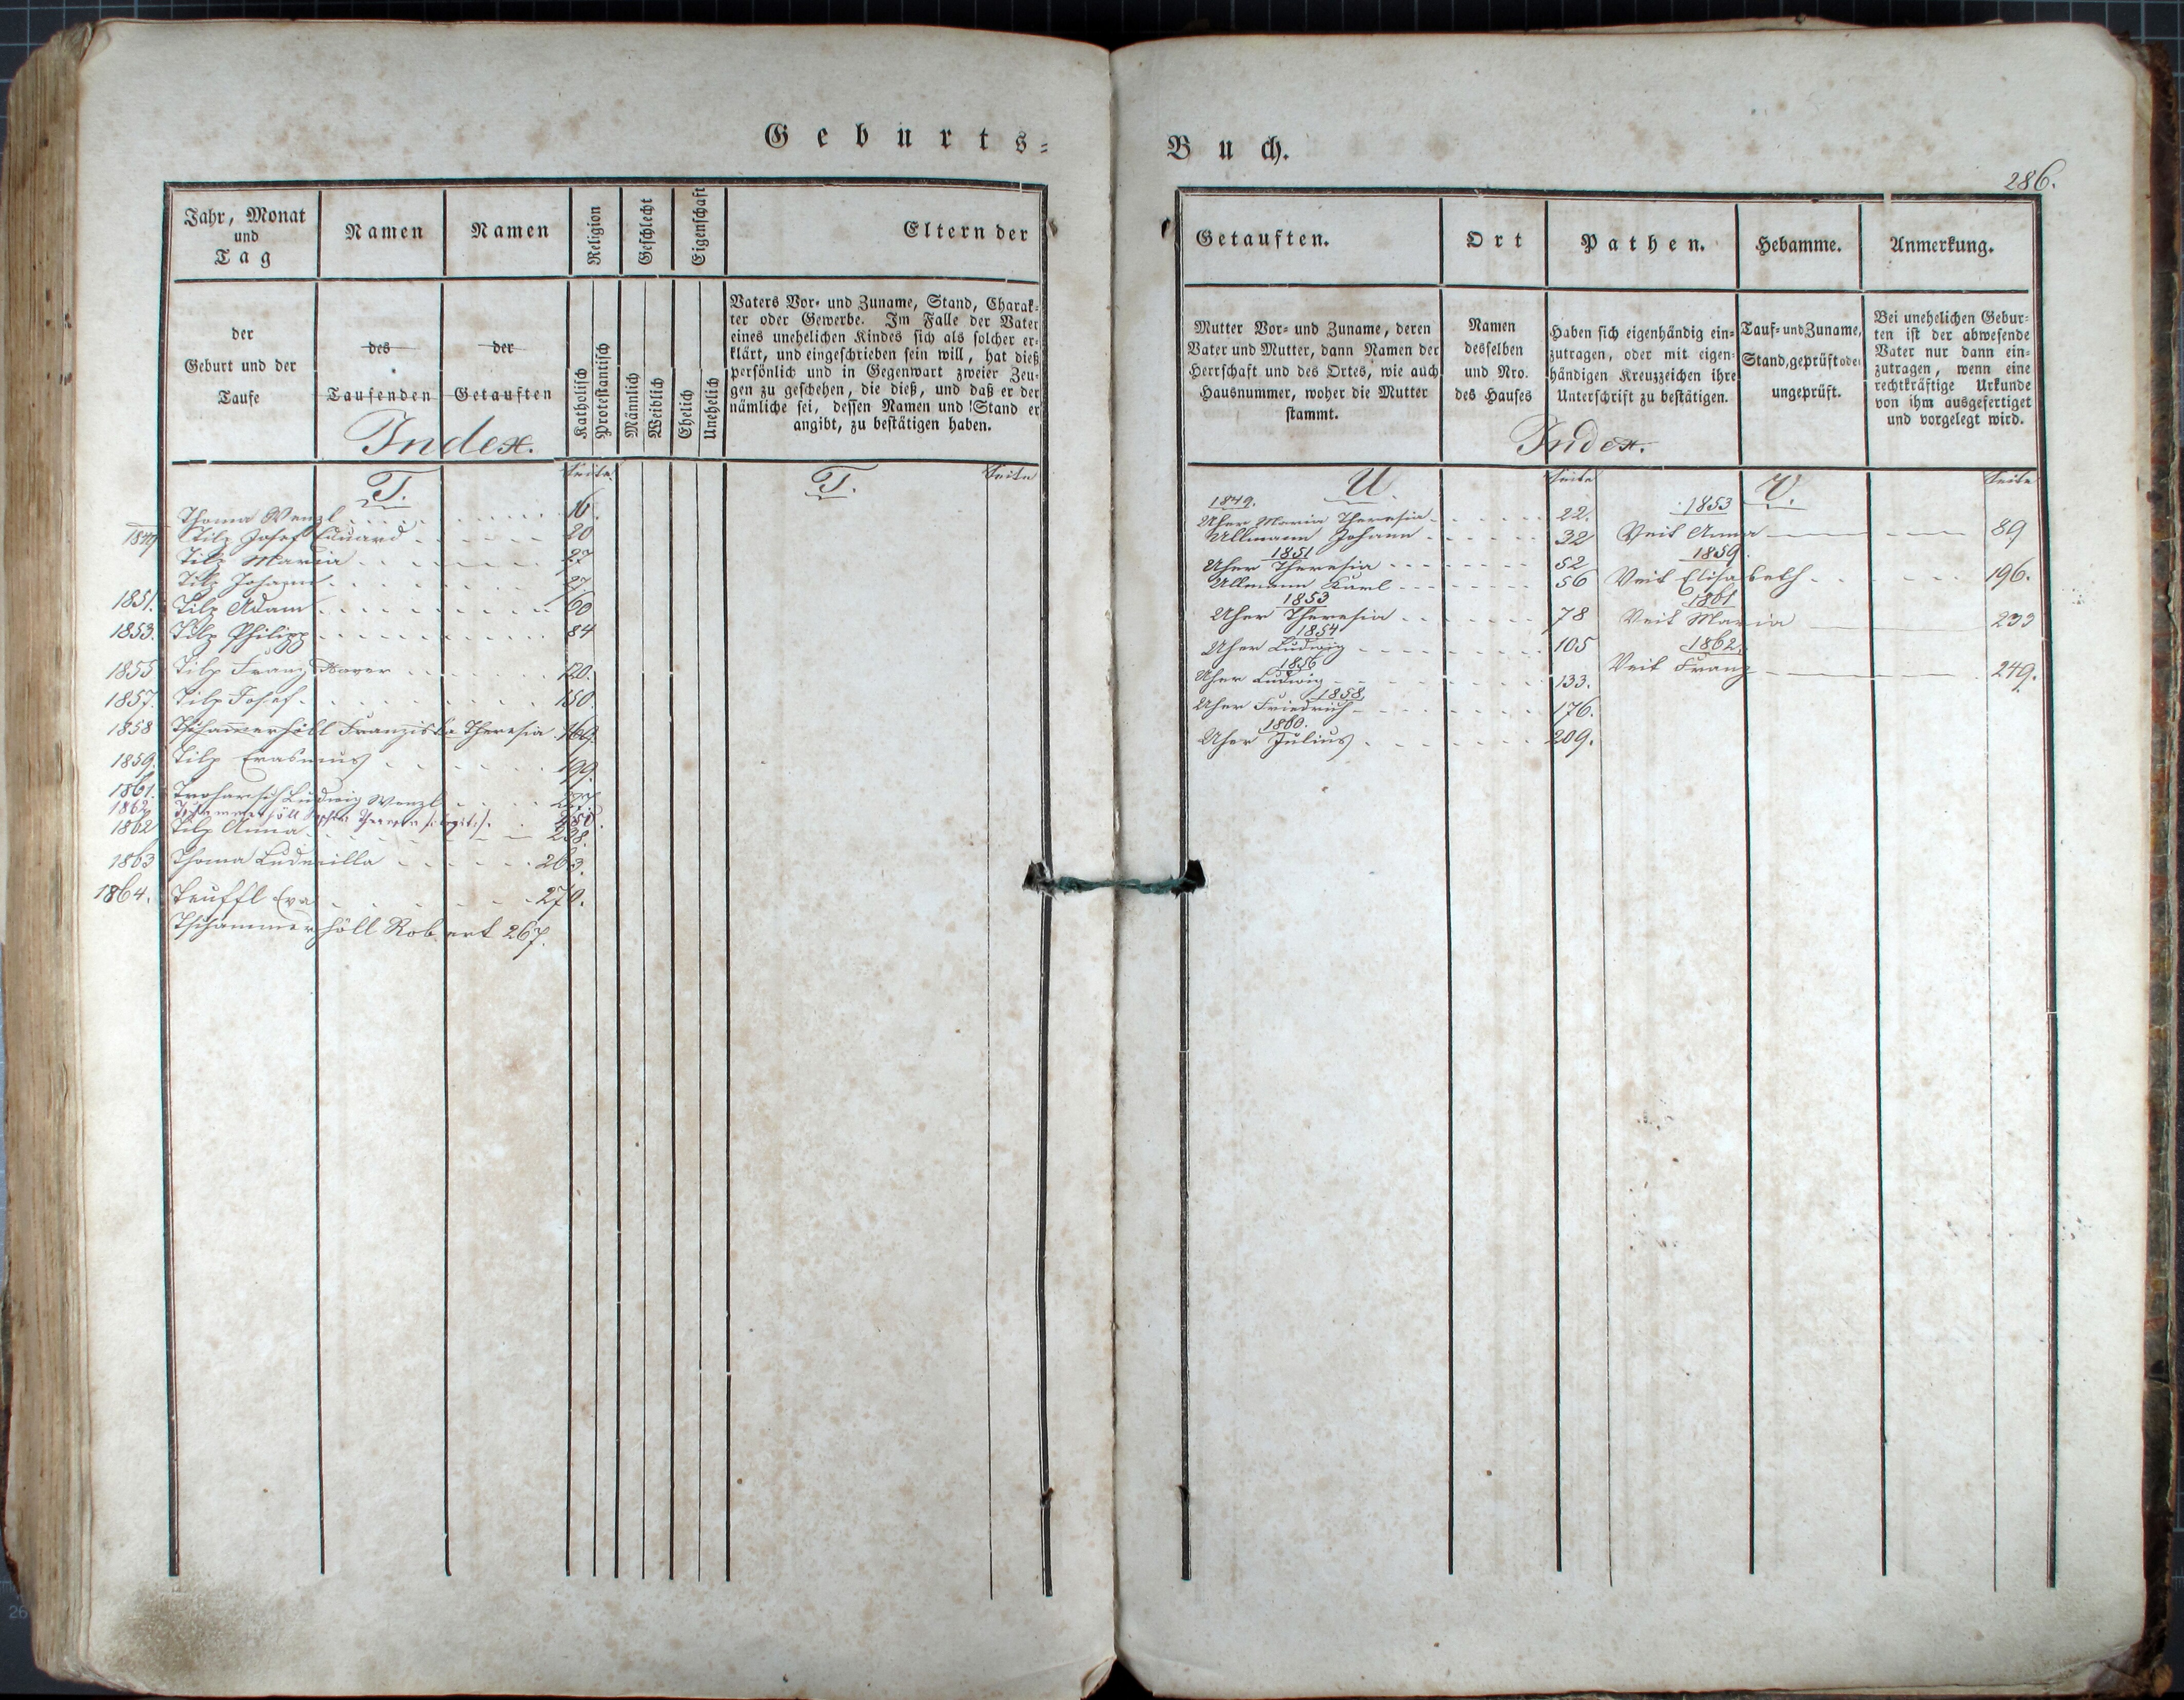 Geburts=
Jahr, Monat
und
Tag
Namen
Namen
Religion
Geschlecht
Eigenschaft
Eltern der
der
Geburt und der
Taufe
des
Taufenden
der
Getauften
Katholisch
Protestantisch
Männlich
Weiblich
Ehelich
Unehelich
Vaters Vor- und Zuname, Stand, Charak-
ter oder Gewerbe. Im Falle der Vater
eines unehelichen Kindes sich als solcher er-
klärt, und eingeschrieben sein will, hat dieß
persönlich und in Gegenwart zweier Zeu-
gen zu geschehen, die dieß, und daß er der
nämliche sei, dessen Namen und Stand er
angibt, zu bestätigen haben.
Index.
T. Seite
T. Seite
Thoma Wenzl 16.
1849 Tilp Josef Eduard 20
Tilp Maria 27
Tilp Johann 27.
1851. Tilp Adam 60
1853. Tilp Philipp 84
1855 Tilp Franz Xaver 120.
1857. Tilp Josef 150.
1858 Tschamerhöll Franziska Theresia 169.
1859. Tilp Erasmus 199.
1861. Ludwig Wenzl
1862 Tschammerhöll
1862 Tilp Anna 238.
1863 Thoma Ludmilla 263.
1864. Teuffl Eva 270.
Tschammerhöll Robert 267.
Buch.
286.
Getauften.
Ort
Pathen.
Hebamme.
Anmerkung.
Mutter Vor- und Zuname, deren
Vater und Mutter, dann Namen der
Herrschaft und des Ortes, wie auch
Hausnummer, woher die Mutter
stammt.
Namen
desselben
und Nro.
des Hauses
Haben sich eigenhändig ein-
zutragen, oder mit eigen-
händigen Kreuzzeichen ihre
Unterschrift zu bestätigen.
Tauf- und Zuname,
Stand, geprüft oder
ungeprüft.
Bei unehelichen Gebur-
ten ist der abwesende
Vater nur dann ein-
zutragen, wenn eine
rechtkräftige Urkunde
von ihm ausgefertiget
und vorgelegt wird.
Index.
U. Seite
1849.
Uher Maria Theresia 22.
Ullmann Johann 32
1851
Uher Theresia 52
Ullmann Karl 56
1853
Uher Theresia 78
1854
Uher Ludwig 105
1856
Uher Ludwig 133.
1858
Uher Friedrich 176.
1860.
Uher Julius 209.
V. Seite
1853
Veit Anna 89
1859.
Veit Elisabeth 196.
1861
Veit Maria 233
1862.
Veit Franz 249.